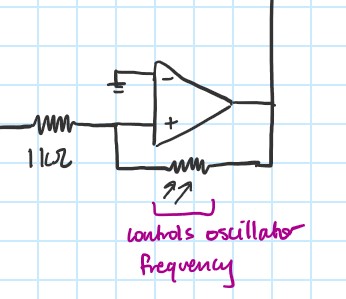 -
+
1kΩ
controls oscillator
frequency